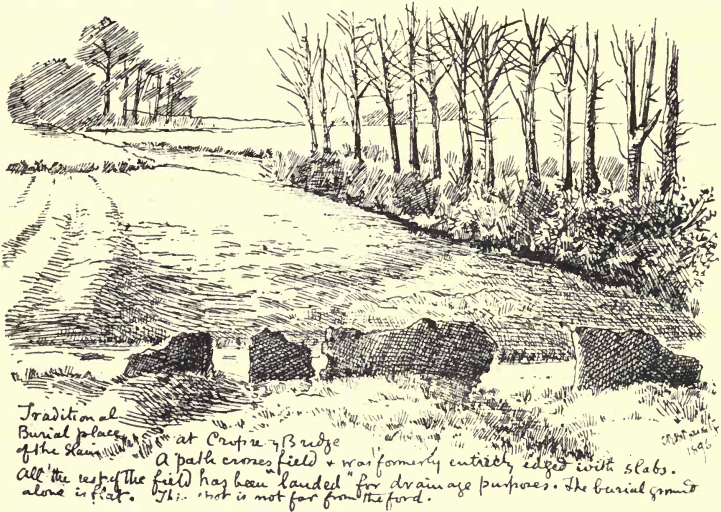 Traditional
Burial place
of the Slain at Cropredy Bridge
A path crosses field & was formerly entirely edged with slabs.
All the rest of the field has been "landed" for drainage purposes. The burial ground
alone is flat. This spot is not far from the ford.
1896